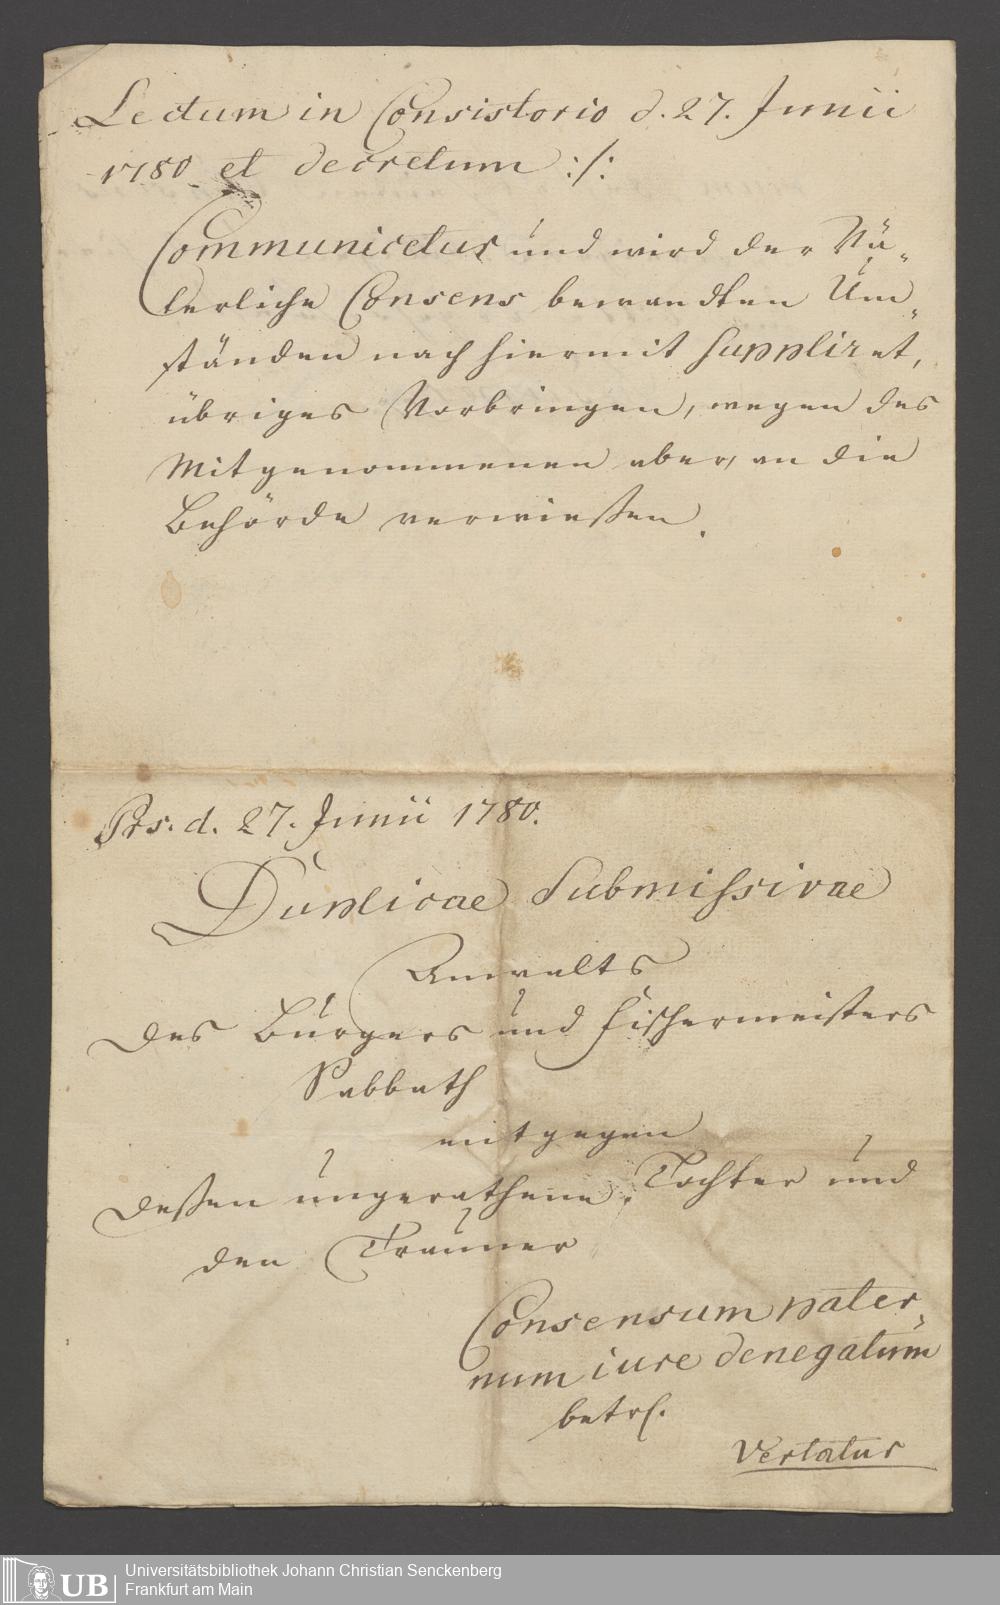 Lectum in Consistorio d. 27. Junii
1780 et decretum :/:
Communicetur und wird der Vä-
terliche Consens bewandten Um-
ständen nach hiermit suppliret,
übriges Vorbringen, wegen des
Mitgenommenen aber, an die
Behörde verwießen.
Prs. d. 27. Junii 1780.
Duplicae Submissivae
Anwalts
des Bürgers und Fischermeisters
Sabbath
entgegen
deßen ungerathene Tochter und
den Trauner
Consensum pater-
num iure denegatum
betrf.
Vertatur
UB
Universitätsbibliothek Johann Christian Senckenberg
Frankfurt am Main